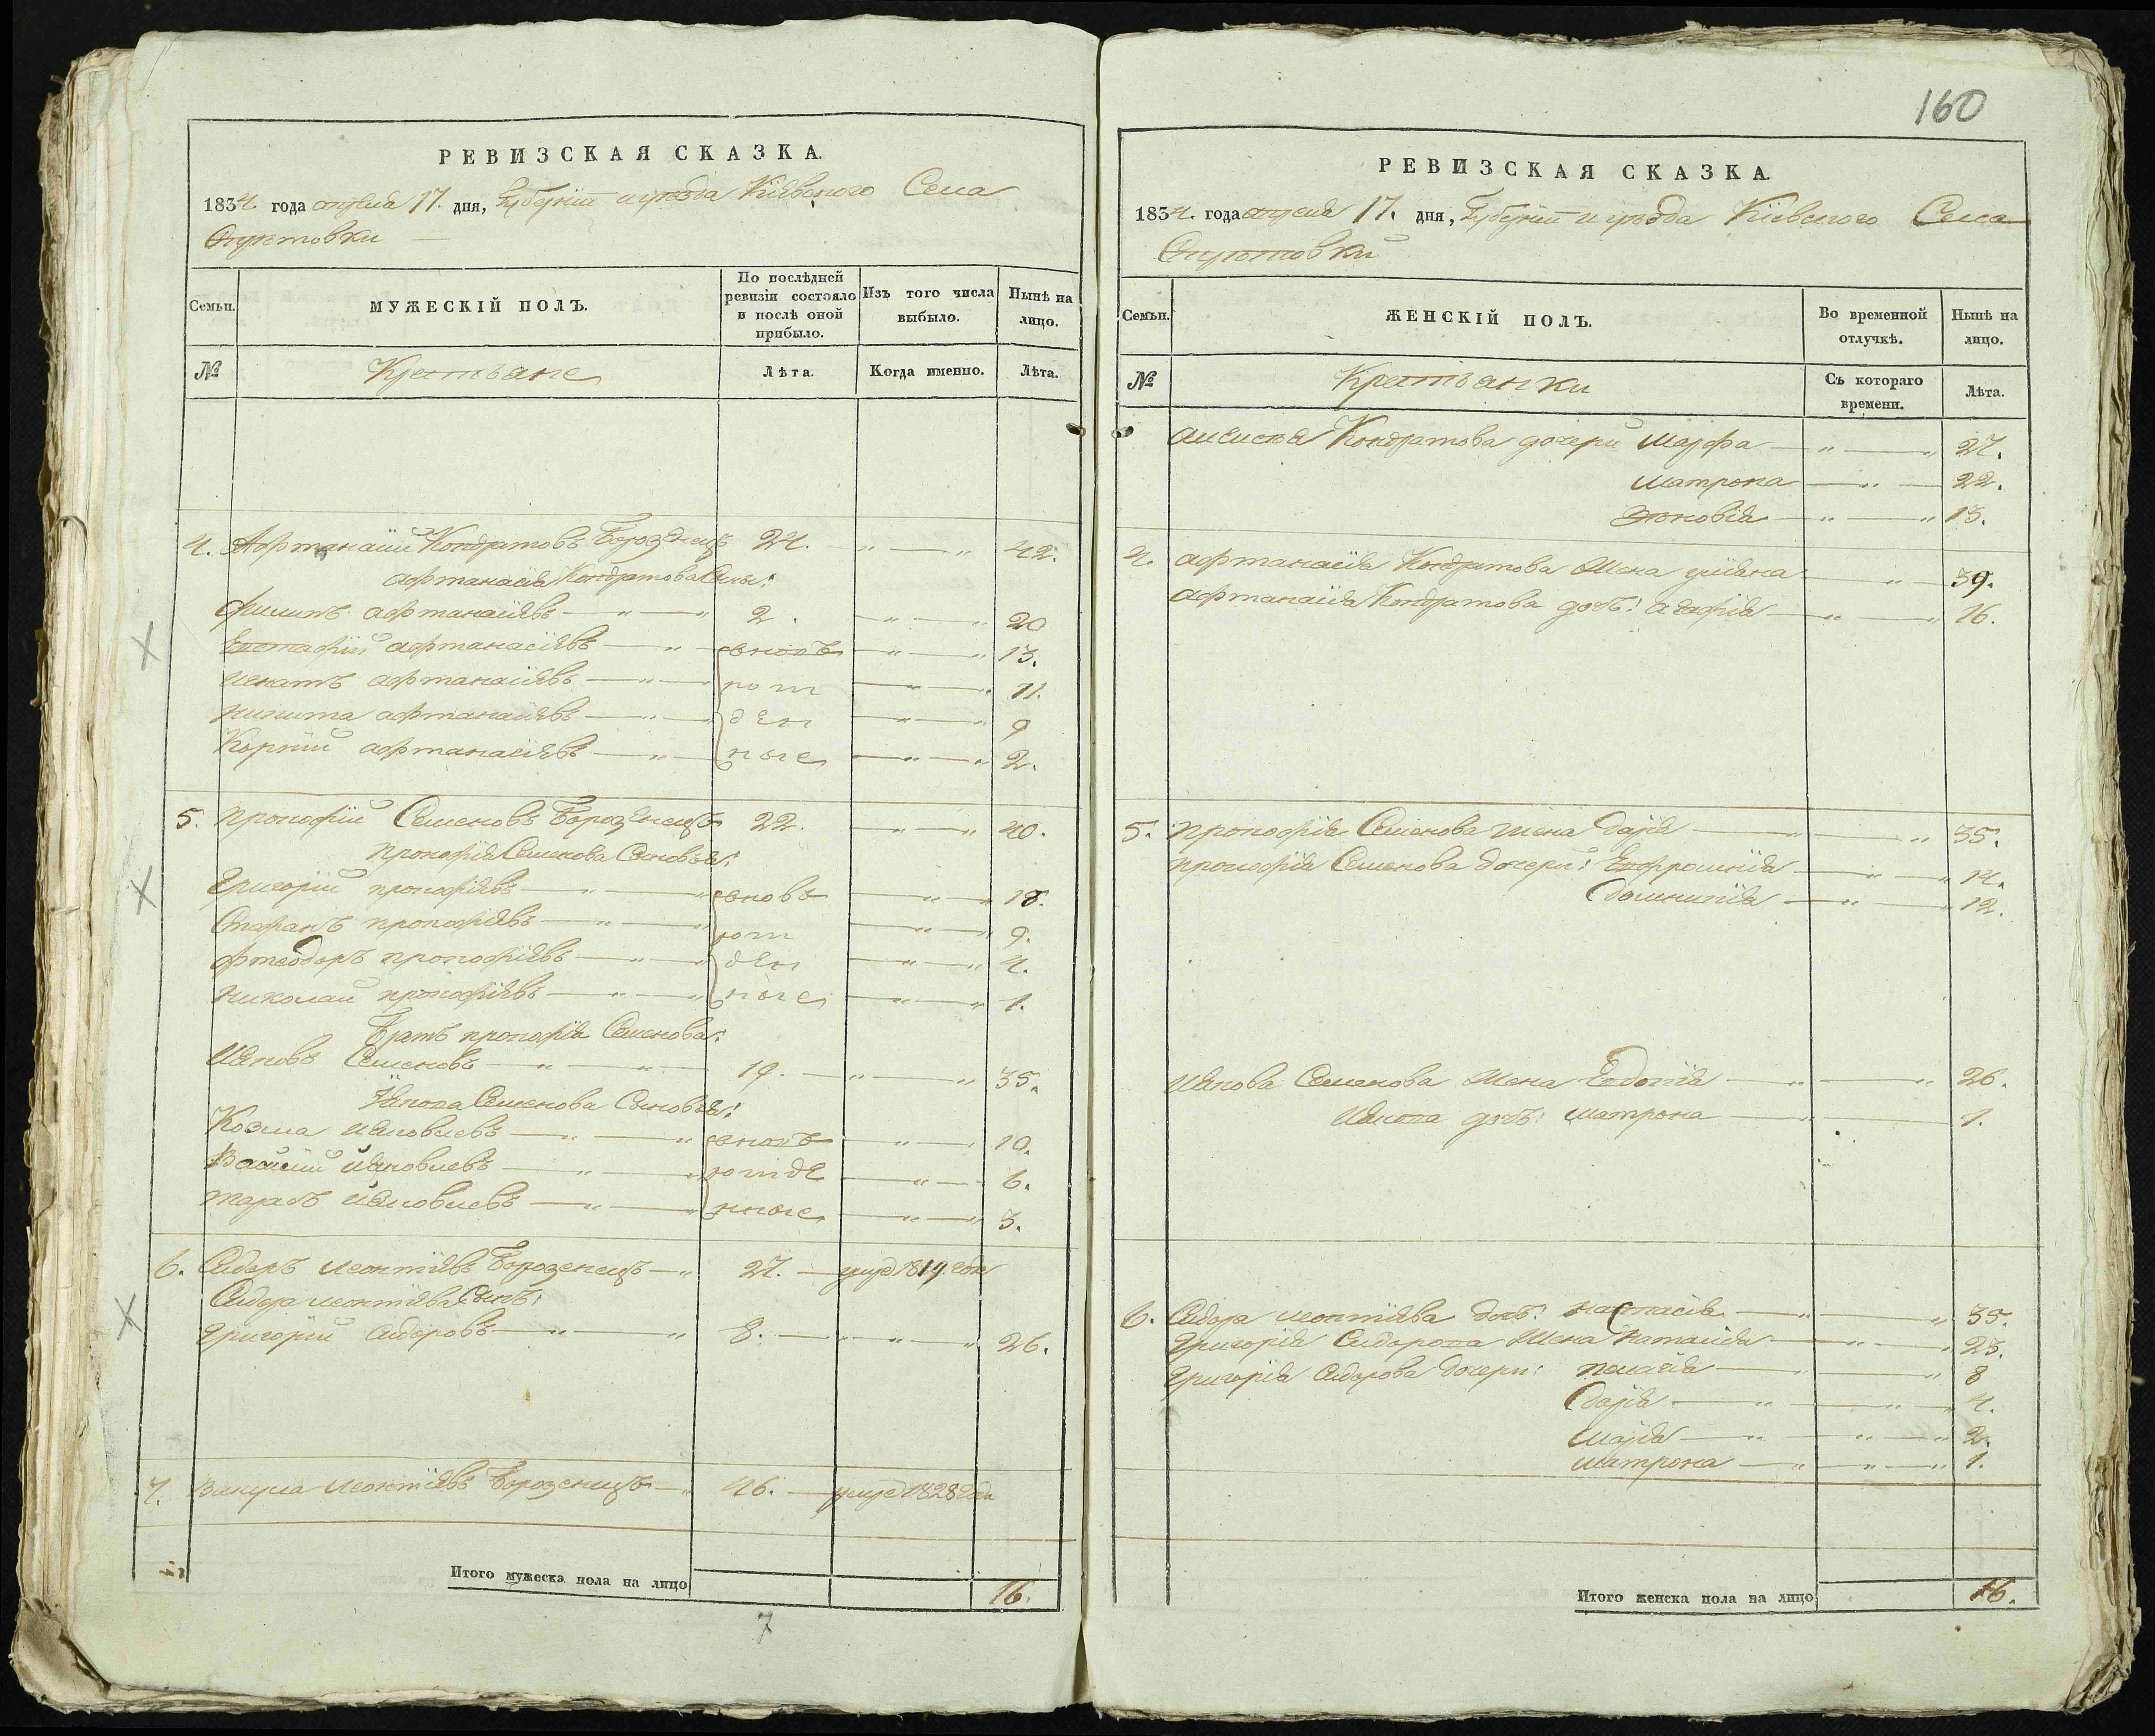 РЕВИЗСКАЯ СКАЗКА.
1834. года апреля 17. дня, Губернии и уезда Кіевского Села
МУЖЕСКІЙ ПОЛЪ.
Семьи.
По послѣдней ревизіи состояло и послѣ оной прибыло.
Изъ того числа выбыло.
Нынѣ на лицо.
№ Крестьяне Лѣта. Когда именно. Лѣта.
4. Афтанасій Кондратовъ Борозенецъ 24. 42.
Афтанасія Кондратова Сыны:
Филипъ Афтанасіевъ 2. 20
Евстафій Афтанасіевъ вновъ 13.
Игнатъ Афтанасіевъ рож 11.
Никита Афтанасіевъ ден 9
Корній Афтанасіевъ ные 2.
5. Прокофій Семеновъ Борозенецъ 22. 40.
Прокофія Семенова Сыновья:
Григорій Прокофіевъ вновь 18.
Стефанъ Прокофіевъ рож 9.
Фтеодоръ Прокофіевъ ден 4.
Николай Прокофіевъ ные 1.
Братъ Прокофія Семенова:
Ияковъ Семеновъ 19. 35.
Иякова Семенова Сыновья:
Козма Ияковлевъ вновъ 10.
Василій Ияковлевъ рожде 6.
Тарасъ Ияковлевъ нные 3.
6. Сидоръ Леонтіевъ Борозенецъ 27. умре 1819. года
Сидора Леонтіева Сынъ:
Григорій Сидоровъ 8. 26.
7. Вакула Леонтіевъ Борозенецъ 46. умре 1828 года
Итого мужеска пола на лицо 16.
7
160
РЕВИЗСКАЯ СКАЗКА.
1834. года апреля 17. дня, Губернии и уезда Кіевского Села
Семьи.
ЖЕНСКІЙ ПОЛЪ.
Во временной отлучкѣ.
Нынѣ на лицо.
№ Крестьянки Съ котораго времени. Лѣта.
Алексея Кондратова дочери Марфа 27.
Матрона 22.
Зѣновія 13.
4. Афтанасія Кондратова Жена Уліяна 39.
Афтанасія Кондратова дочь: Агафія 16.
5. Прокофія Семенова Жена Дарія 35.
Прокофія Семенова Дочери: Евфросинія 14.
Домникія 12.
Иякова Семенова Жена Евдокія 26.
Иякова дочь: Матрона 1.
6. Сидора Леонтіева Дочь: Настасія 35.
Григорія Сидорова Жена Наталія 25.
Григорія Сидорова Дочери: Пелагія 8
Дарія 4.
Марія 2.
Матрона 1.
Итого женска пола на лицо 16.